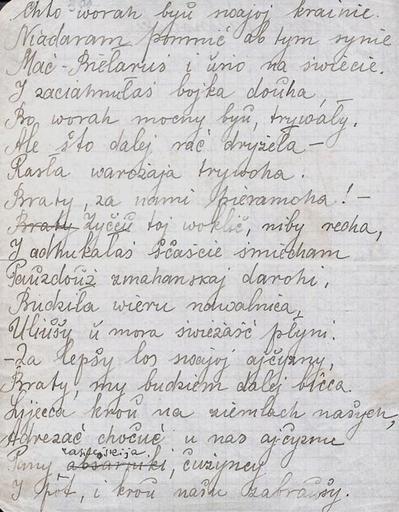 Chto worah byŭ swajoj krainie.
Niadaram pomnić ab tym synie
Mać-Biełaruś i ŭño na świecie.
I zaciahnułaś bojka doŭha,
Bo, worah mocny byŭ, trywáły.
Ale što dalej rać dryżeła —
Rasła warożaja trywoha.
Braty, za nami pieramoha! —
Braty Żyććiŭ toj woklič, niby recha,
I adhukałaś ščaście śmiecham
Paŭzdoŭż zmahanskaj darohi,
Budziła wieru nawalnica,
Uliŭšy ŭ mora świeżaść płyni.
— Za lepšy los swajoj ajčyzny,
Braty, my budziem dalej bicca.
Lijecca kroŭ na ziemlach našych,
Adrezać chočuć u nas ajčyznu
Pany zaparskija absarniki, čużyncy
I pot, i kroŭ našu zabraŭšy.